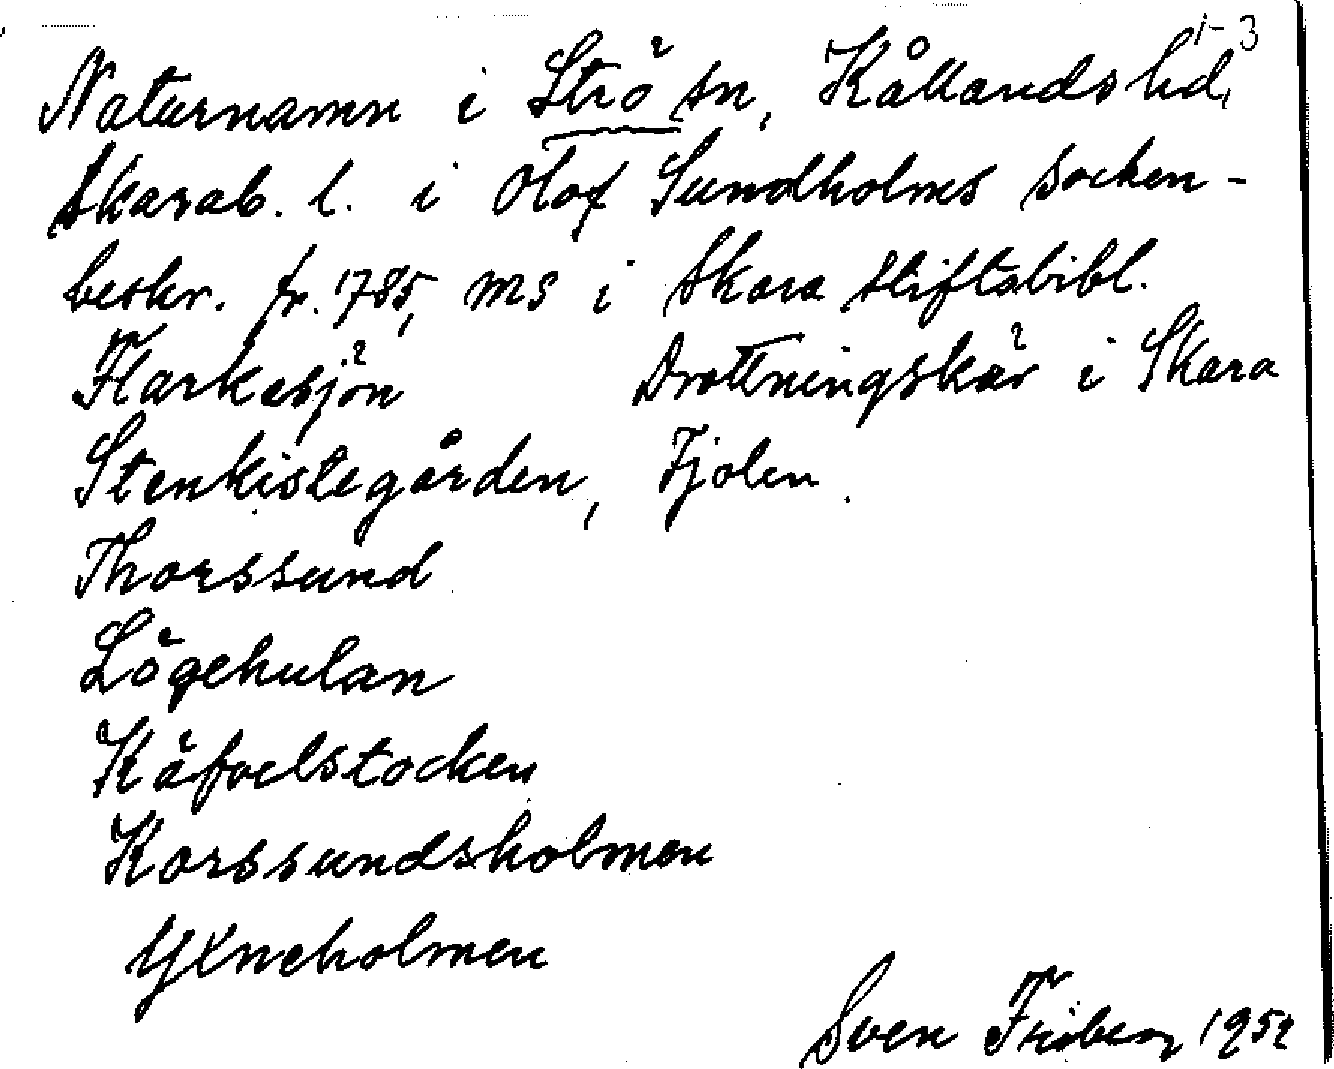 1-3
Naturnamn i Strö sn, Kållands hd,
Skarab. l. i Olof Sundholms socken-
beskr. fr. 1785, MS i Skara stiftsbibl.
Flarkesjön Drottningskär i Skara
Stenkistegården, Fjolen.
Thorssund
Lögehulan
Käfvelstocken
Korssundsholmen
Yxneholmen
Sven Friberg 1952